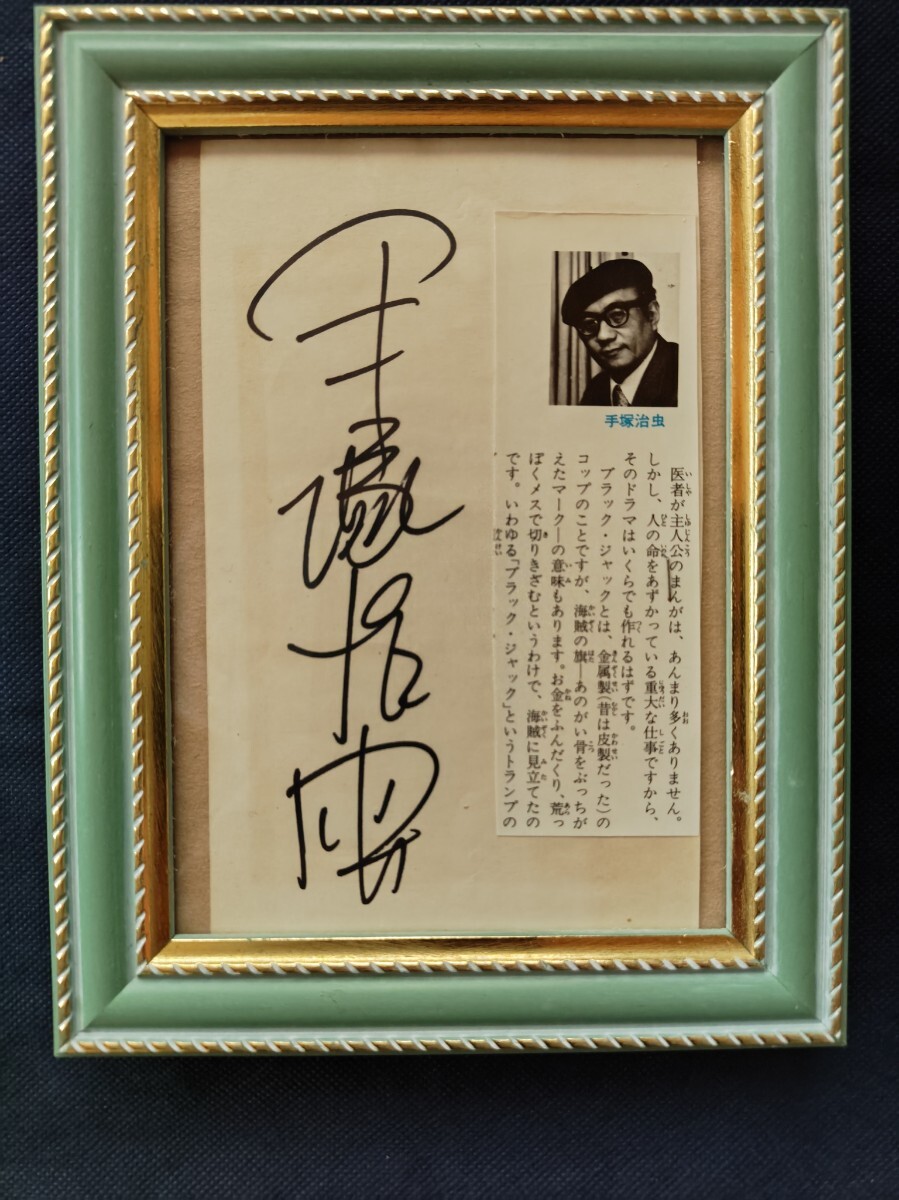 手塚治虫
手塚治虫
医者が主人公のまんがは、あんまり多くありません。
しかし、人の命をあずかっている重大な仕事ですから、
そのドラマはいくらでも作れるはずです。
ブラック・ジャックとは、金属製（昔は皮製だった）の
コップのことですが、海賊の旗―あのがい骨をぶっちが
えたマーク―の意味もあります。お金をふんだくり、荒っ
ぽくメスで切りきざむというわけで、海賊に見立てたの
です。いわゆる「ブラック・ジャック」というトランプの